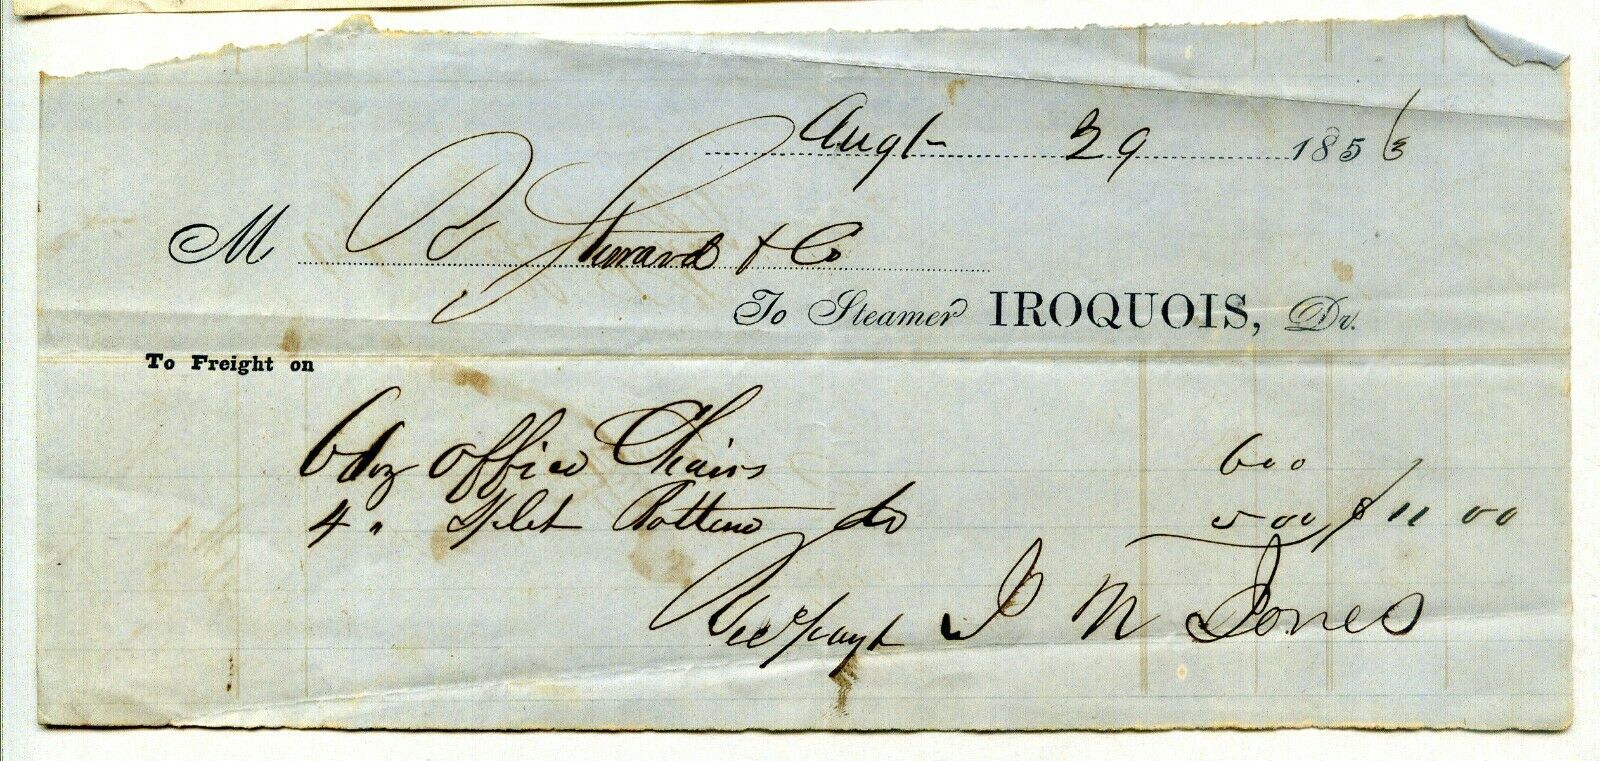 Augt 29 1856
M R Steward & Co
To Steamer IROQUOIS, Dr.
To Freight on
6 doz Office Chairs 600
4 " Split Bottom do 500 $11 00
Recd payt J M Jones